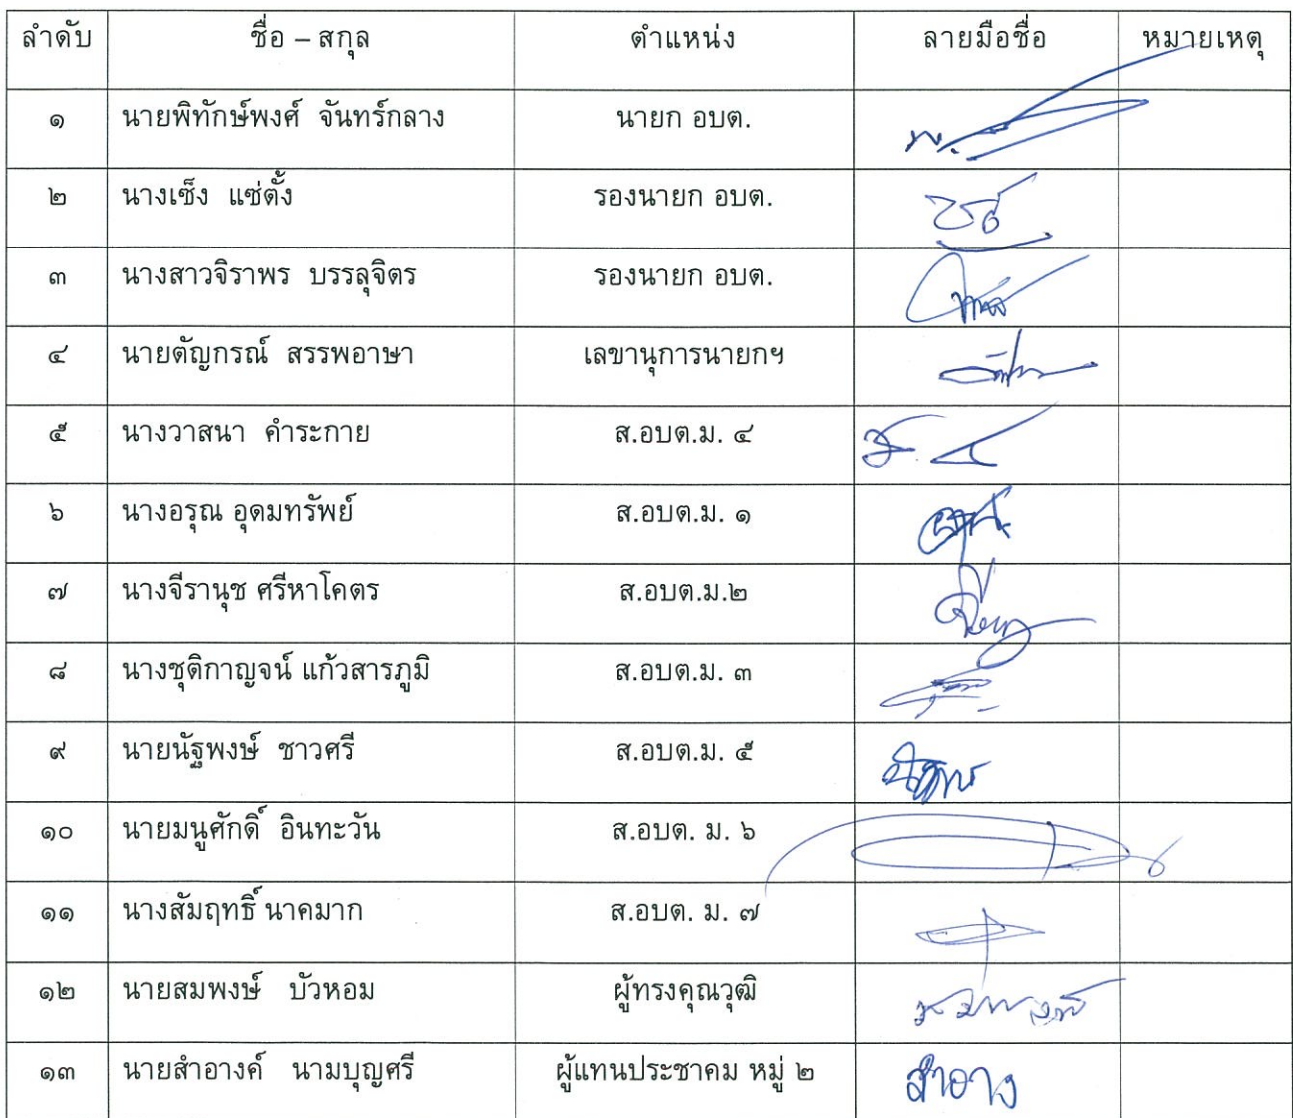 ลำดับ ชื่อ – สกุล ตำแหน่ง ลายมือชื่อ หมายเหตุ
๑ นายพิทักษ์พงศ์ จันทร์กลาง นายก อบต.
๒ นางเซ็ง แซ่ตั้ง รองนายก อบต.
๓ นางสาวจิราพร บรรลุจิตร รองนายก อบต.
๔ นายตัญกรณ์ สรรพอาษา เลขานุการนายกฯ
๕ นางวาสนา คำระกาย ส.อบต.ม. ๔
๖ นางอรุณ อุดมทรัพย์ ส.อบต.ม. ๑
๗ นางจีรานุช ศรีหาโคตร ส.อบต.ม.๒
๘ นางชุติกาญจน์ แก้วสารภูมิ ส.อบต.ม. ๓
๙ นายนัฐพงษ์ ชาวศรี ส.อบต.ม. ๕
๑๐ นายมนูศักดิ์ อินทะวัน ส.อบต. ม. ๖
๑๑ นางสัมฤทธิ์ นาคมาก ส.อบต. ม. ๗
๑๒ นายสมพงษ์ บัวหอม ผู้ทรงคุณวุฒิ
๑๓ นายสำอางค์ นามบุญศรี ผู้แทนประชาคม หมู่ ๒ สำอาง